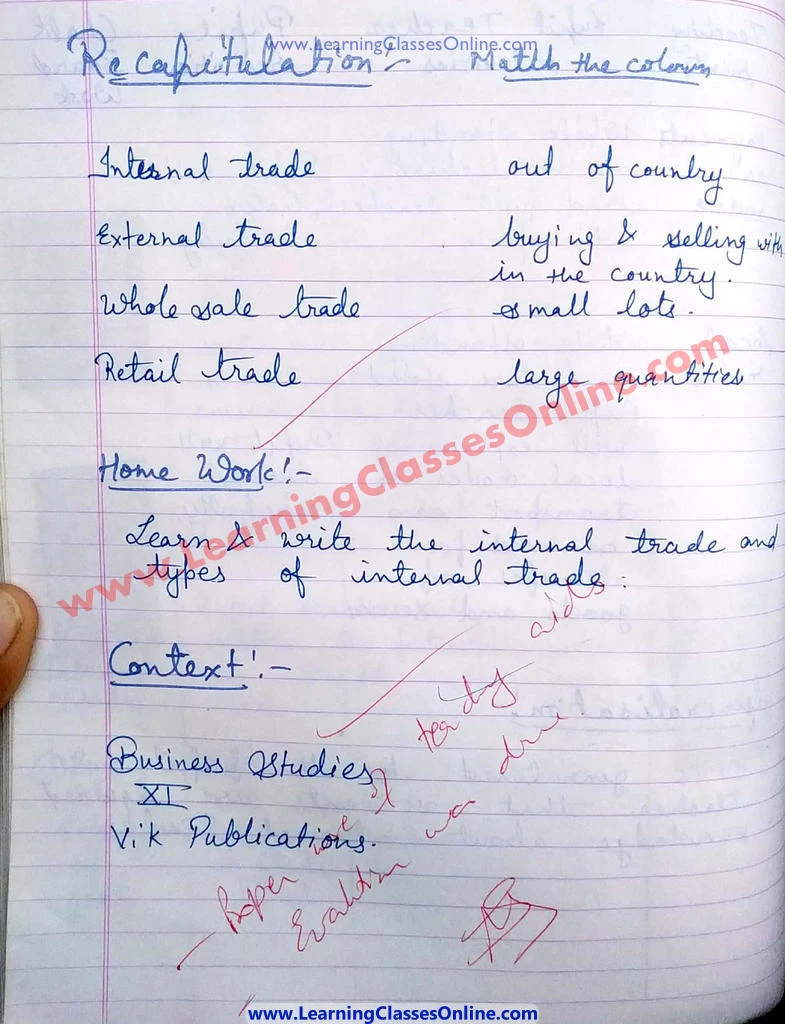 www.LearningClassesOnline.com
Recapitulation - Match the colown
Internal trade out of country
External trade buying & selling with
in the country.
Whole sale trade small lots.
Retail trade large quantities
Home Work!-
Learn & write the internal trade and
types of internal trade.
Context!-
Business Studies
XI
V.k Publications.
Proper use of teaching aids
Evaluation was done
www.LearningClassesOnline.com
www.LearningClassesOnline.com